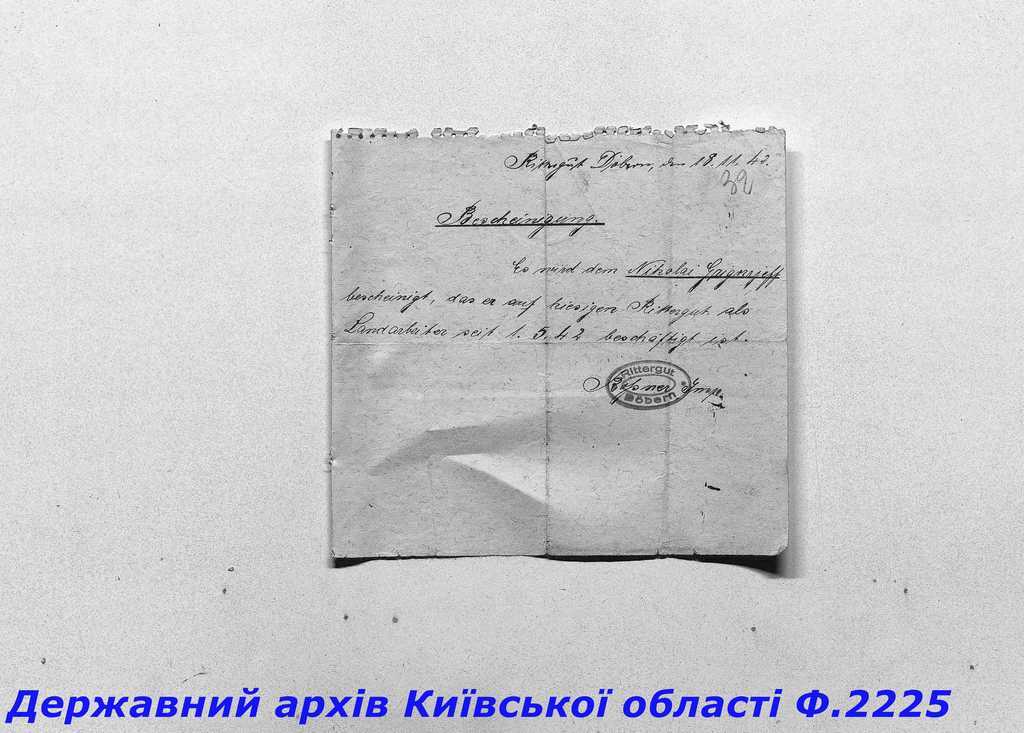 Rittergut Döbern, den 18.11.42.
32
Bescheinigung.
Es wird dem Nikolai Grigorjeff
bescheinigt, das er auf hiesigen Rittergut als
Landarbeiter seit 1.5.42 beschäftigt ist.
Rittergut
Döbern
Державний архів Київської області Ф.2225